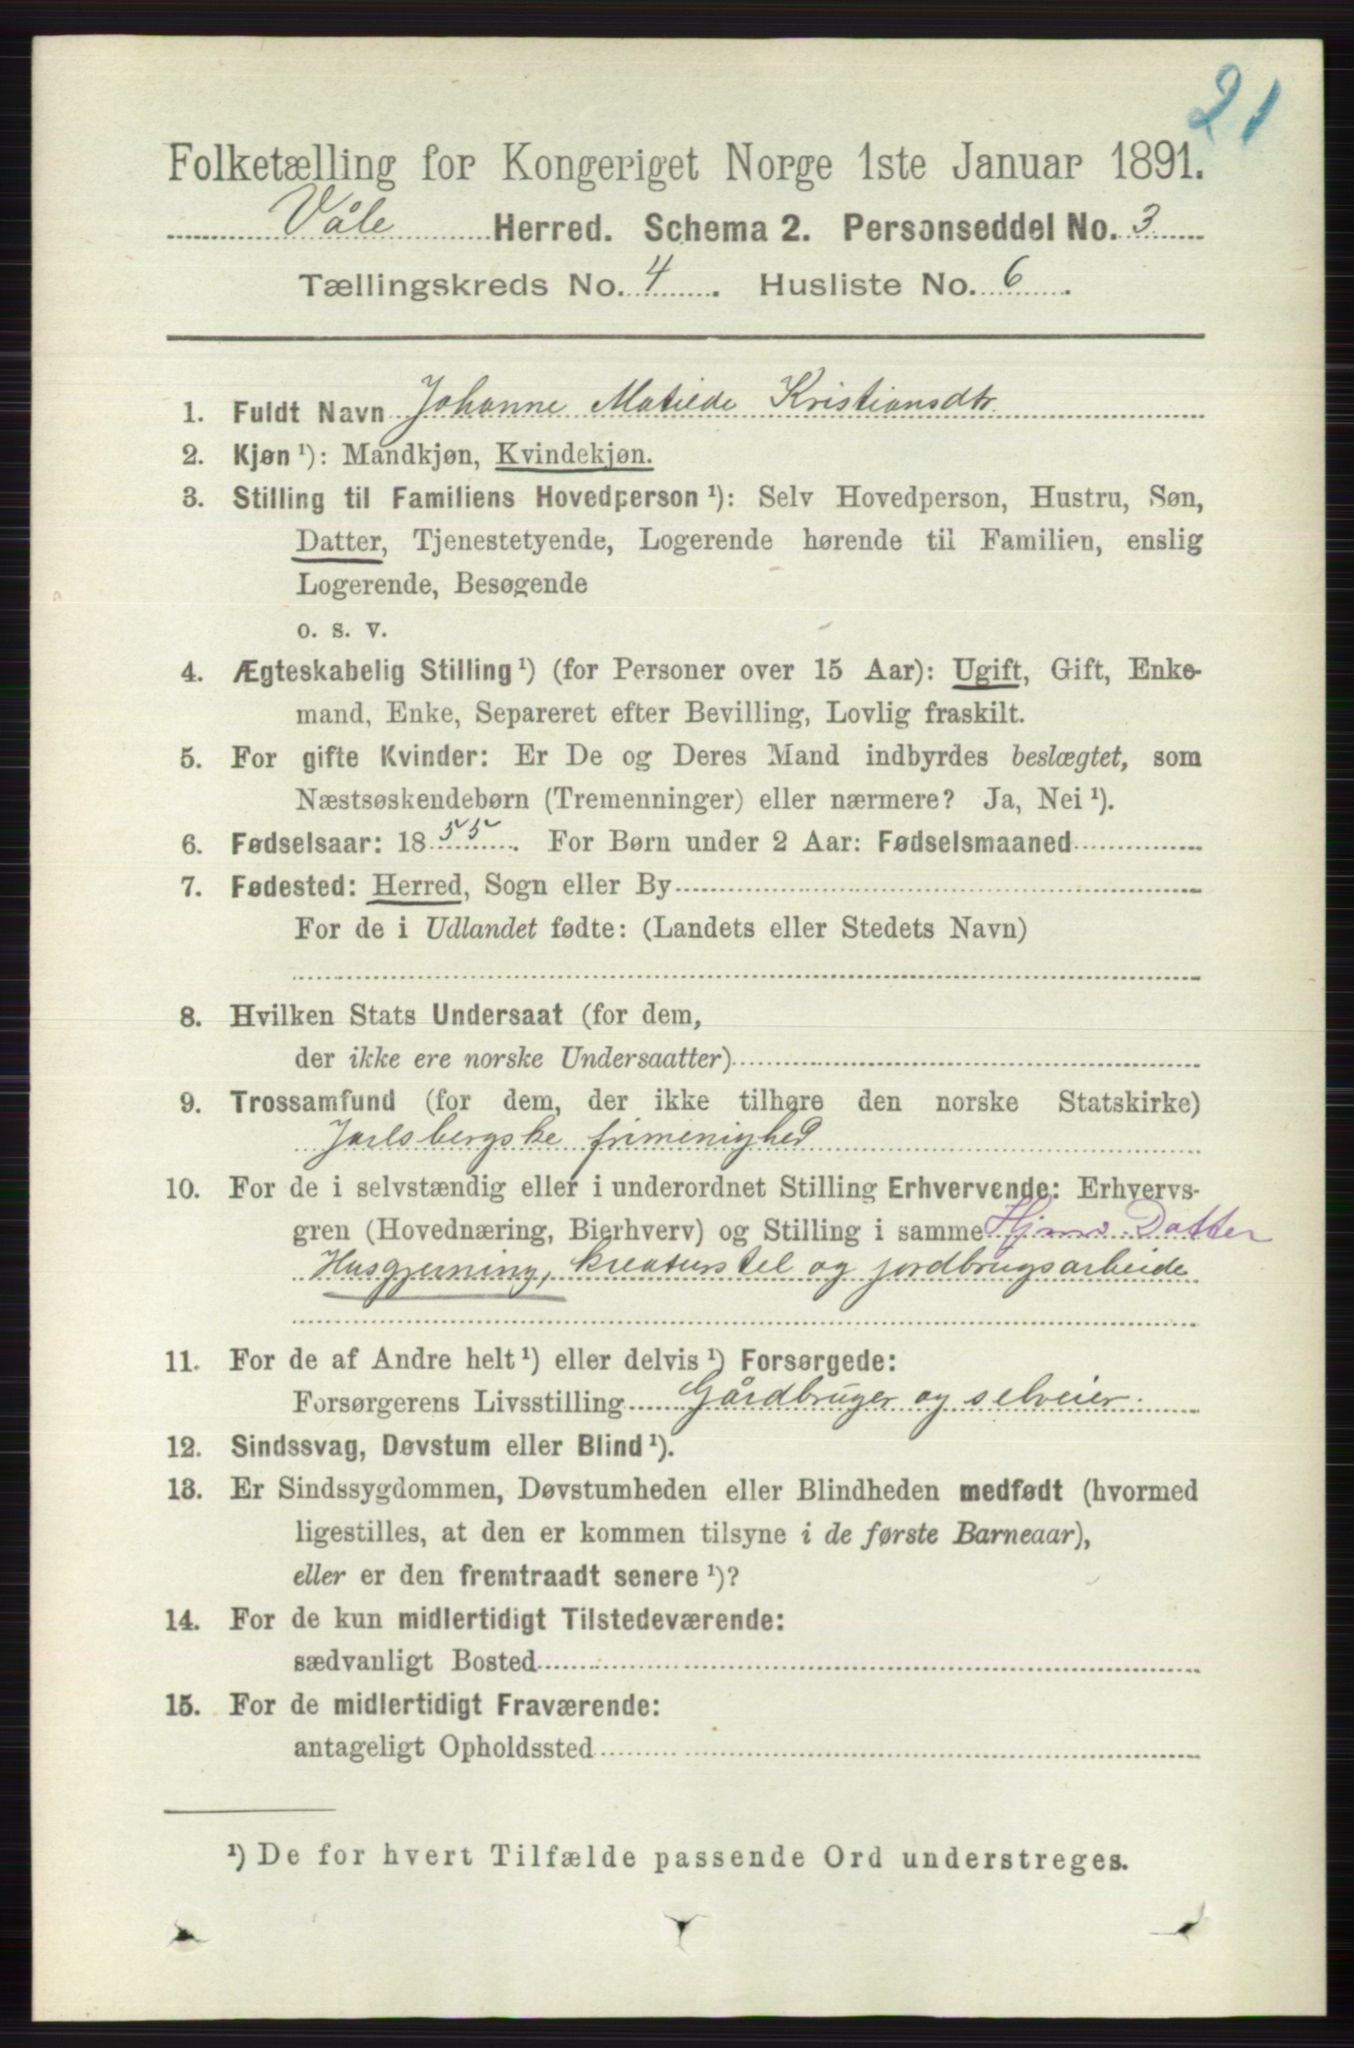 21
Folketælling for Kongeriget Norge 1ste Januar 1891.
Våle Herred. Schema 2. Personseddel No. 3
Tællingskreds No. 4. Husliste No. 6.
1. Fuldt Navn Johanne Matilde Kristiansdtr.
2. Kjøn ¹): Mandkjøn, Kvindekjøn.
3. Stilling til Familiens Hovedperson ¹): Selv Hovedperson, Hustru, Søn,
Datter, Tjenestetyende, Logerende hørende til Familien, enslig
Logerende, Besøgende
o. s. v.
4. Ægteskabelig Stilling ¹) (for Personer over 15 Aar): Ugift, Gift, Enke-
mand, Enke, Separeret efter Bevilling, Lovlig fraskilt.
5. For gifte Kvinder: Er De og Deres Mand indbyrdes beslægtet, som
Næstsøskendebørn (Tremenninger) eller nærmere? Ja, Nei ¹).
6. Fødselsaar: 1855. For Børn under 2 Aar: Fødselsmaaned
7. Fødested: Herred, Sogn eller By
For de i Udlandet fødte: (Landets eller Stedets Navn)
8. Hvilken Stats Undersaat (for dem,
der ikke ere norske Undersaatter)
9. Trossamfund (for dem, der ikke tilhøre den norske Statskirke)
Jarlsbergske frimenighed
10. For de i selvstændig eller i underordnet Stilling Erhvervende: Erhvervs-
gren (Hovednæring, Bierhverv) og Stilling i samme Hjmv. Datter
Husgjerning, kreaturstel og jordbrugsarbeide
11. For de af Andre helt ¹) eller delvis ¹) Forsørgede:
Forsørgerens Livsstilling Gårdbruger og selveier.
12. Sindssvag, Døvstum eller Blind ¹).
13. Er Sindssygdommen, Døvstumheden eller Blindheden medfødt (hvormed
ligestilles, at den er kommen tilsyne i de første Barneaar),
eller er den fremtraadt senere ¹)?
14. For de kun midlertidigt Tilstedeværende:
sædvanligt Bosted
15. For de midlertidigt Fraværende:
antageligt Opholdssted
¹) De for hvert Tilfælde passende Ord understreges.